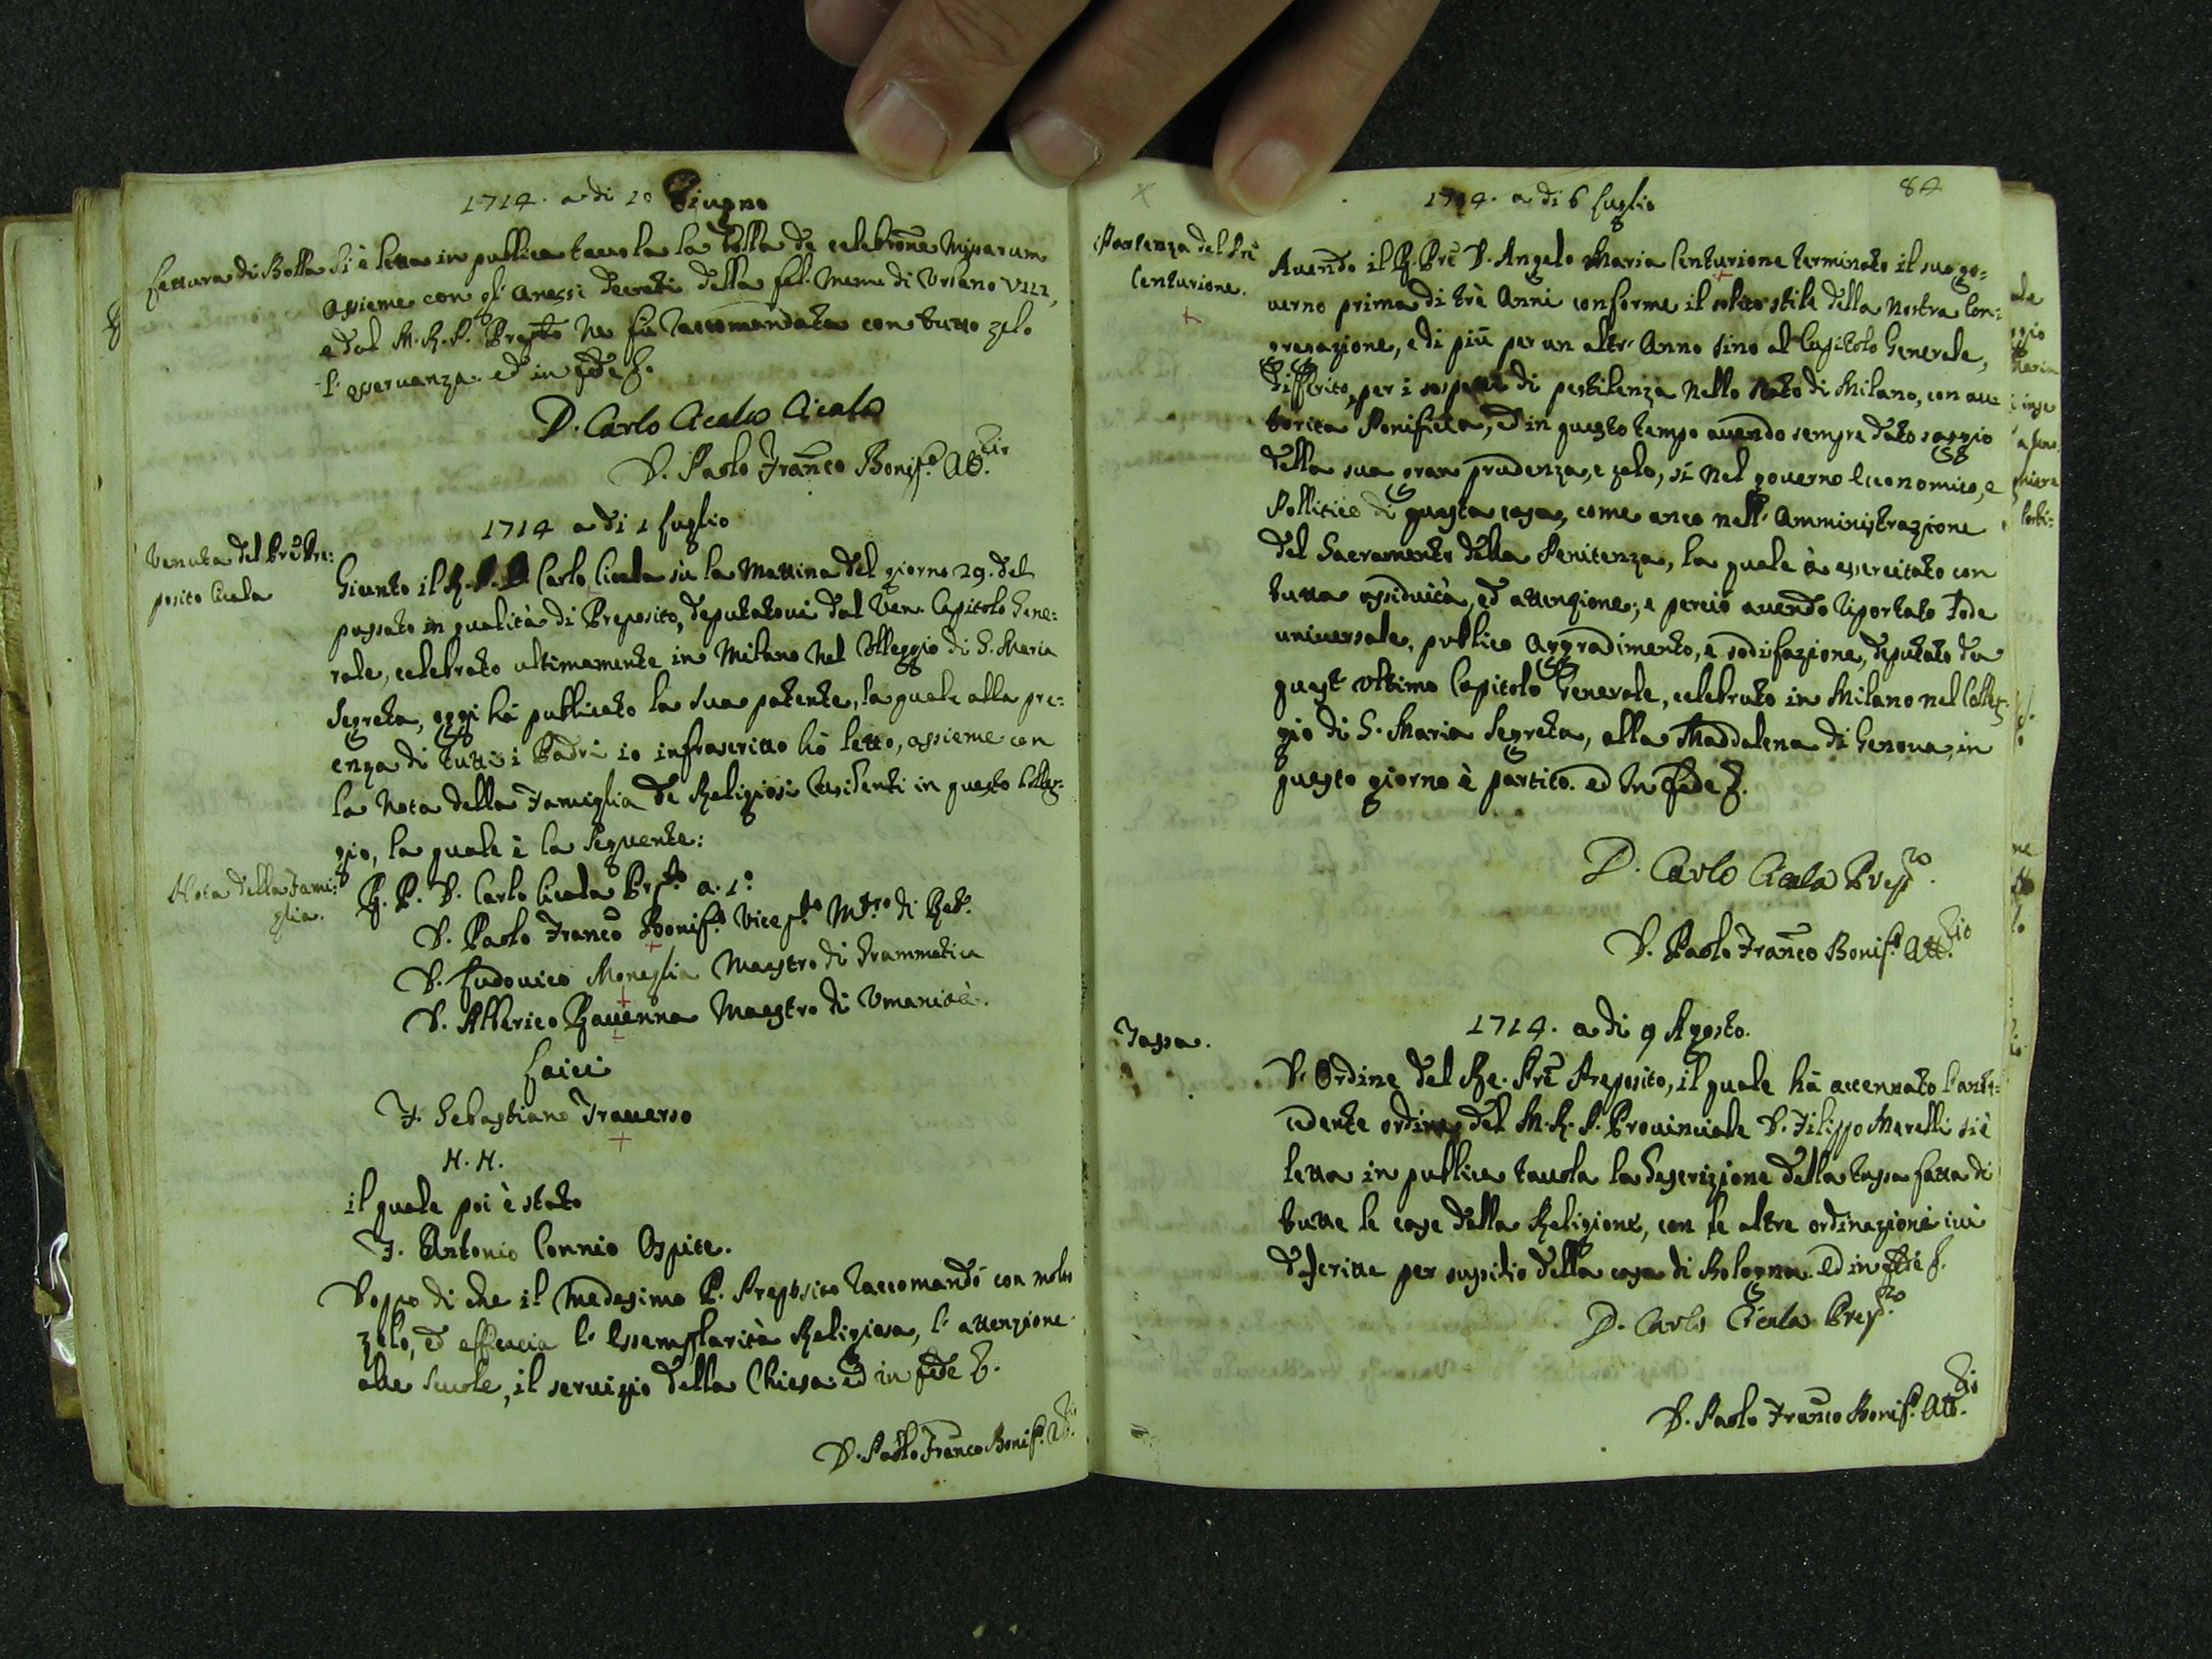 1714. a di 10 Giugno
Lettura di Bolla
Si è letta in publica tavola la bolla de celebrōne Missarum
assieme con gl' anessi decreti della fel. Mem. di Urbano VIII,
e dal M. R. P. Prepto ne fù raccomandata con tutto zelo
l' osservanza. ed in fede &.
D. Carlo Cicala Cicala
D. Paolo Franco Bonif.o Att.rio
1714 a di 1 Luglio
Venuta del Prē Pre:
posito Cicala
Giunto il R. P. D. Carlo Cicala sù la Mattina del giorno 29. del
passato in qualità di Preposito, deputatovi dal Ven. Capitolo Gene:
rale, celebrato ultimamente in Milano nel Colleggio di S. Maria
Segreta, oggi hà publicato la sua patente, la quale alla pre:
enza di tutti i Padri io infrascritto hò letto, assieme con
la nota della Famiglia de Religiosi Residenti in questo Colleg:
gio, la quale è la seguente:
Nota della Fami:
glia.
R. P. D. Carlo Cicala Prepto a. 1.o
D. Paolo Franco Bonif.o Vicep.to M.tro di Ret.
D. Ludovico Moneglia Maestro di Grammatica
D. Alberico Ravenna Maestro di Umanità.
Laici
F. Sebastiano Traverso
N. N.
il quale poi è stato
F. Antonio Connio Ospite.
Doppo di che il medesimo P. Preposito raccomandò con molto
zelo, ed efficacia l' Essemplarità Religiosa, l' attenzione
alle scuole, il servizio della Chiesa. ed in fede &.
D. Paolo Franco Bonif.o
84
1714. a di 6 Luglio
Partenza del Prē
Centurione.
Avendo il R. Prē D. Angelo Maria Centurione terminato il suo go:
verno prima di trè Anni conforme il solito stile della nostra Con:
gregazione, e di più per un altr' Anno sino al Capitolo Generale,
differito, per i sospetti di pestilenza nello stato di Milano, con au
torità Ponificia, ed in questo tempo avendo sempre dato saggio
della sua gran prudenza, e zelo, sì nel governo Economico, e
Pollitico di questa casa, come anco nell' Amministrazione
del Sacramento della Penitenza, la quale à essercitato con
tutta assiduità, ed attenzione, e perciò avendo riportato lode
universale, publico aggradimento, e sodisfazione, deputato da
quest' ultimo Capitolo Generale, celebrato in Milano nel Colleg:
gio di S. Maria Segreta, alla Maddalena di Genova, in
questo giorno è partito. ed In fede &.
D. Carlo Cicala Prep.to
D. Paolo Franco Bonif.o Att.rio
1714. a di 9 Agosto.
Tassa.
D' Ordine del Re. Prē Preposito, il quale hà accennato l' ante:
cedente ordine del M. R. P. Provinciale D. Filippo Marelli si è
letta in publica tavola la descrizione della tassa fatta di
tutte le case della Religione, con le altre ordinazioni ivi
descritte per sussidio della casa di Bologna. ed in fede &.
D. Carlo Cicala Prep.to
D. Paolo Franco Bonif.o Att.rio